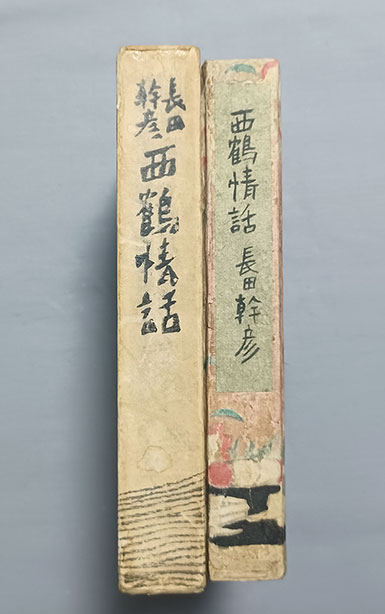 長田
幹彦
西鶴情話
西鶴情話 長田幹彦